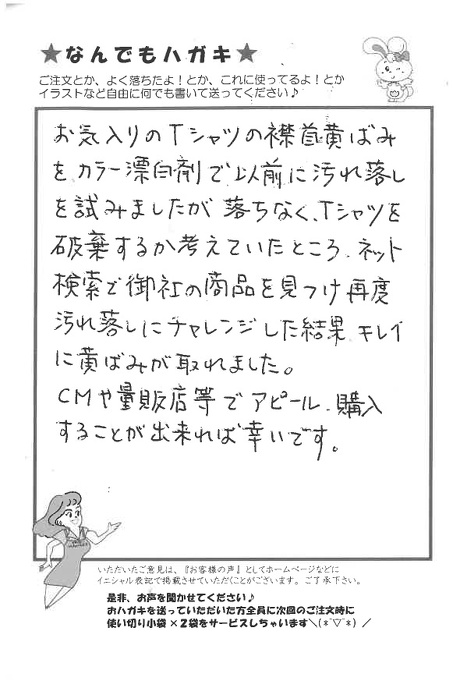 ★なんでもハガキ★
ご注文とか、よく落ちたよ！とか、これに使ってるよ！とか
イラストなど自由に何でも書いて送ってください♪
お気入りのTシャツの襟首黄ばみ
を、カラー漂白剤で以前に汚れ落し
を試みましたが落ちなく、Tシャツを
破棄するか考えていたところ、ネット
検索で御社の商品を見つけ再度
汚れ落しにチャレンジした結果キレイ
に黄ばみが取れました。
CMや量販店等でアピール、購入
することが出来れば幸いです。
いただいたご意見は、『お客様の声』としてホームページなどに
イニシャル表記で掲載させていただくことがございます。ご了承下さい。
是非、お声を聞かせてください♪
おハガキを送っていただいた方全員に次回のご注文時に
使い切り小袋×2袋をサービスしちゃいます＼(*ˆ▽ˆ*)／